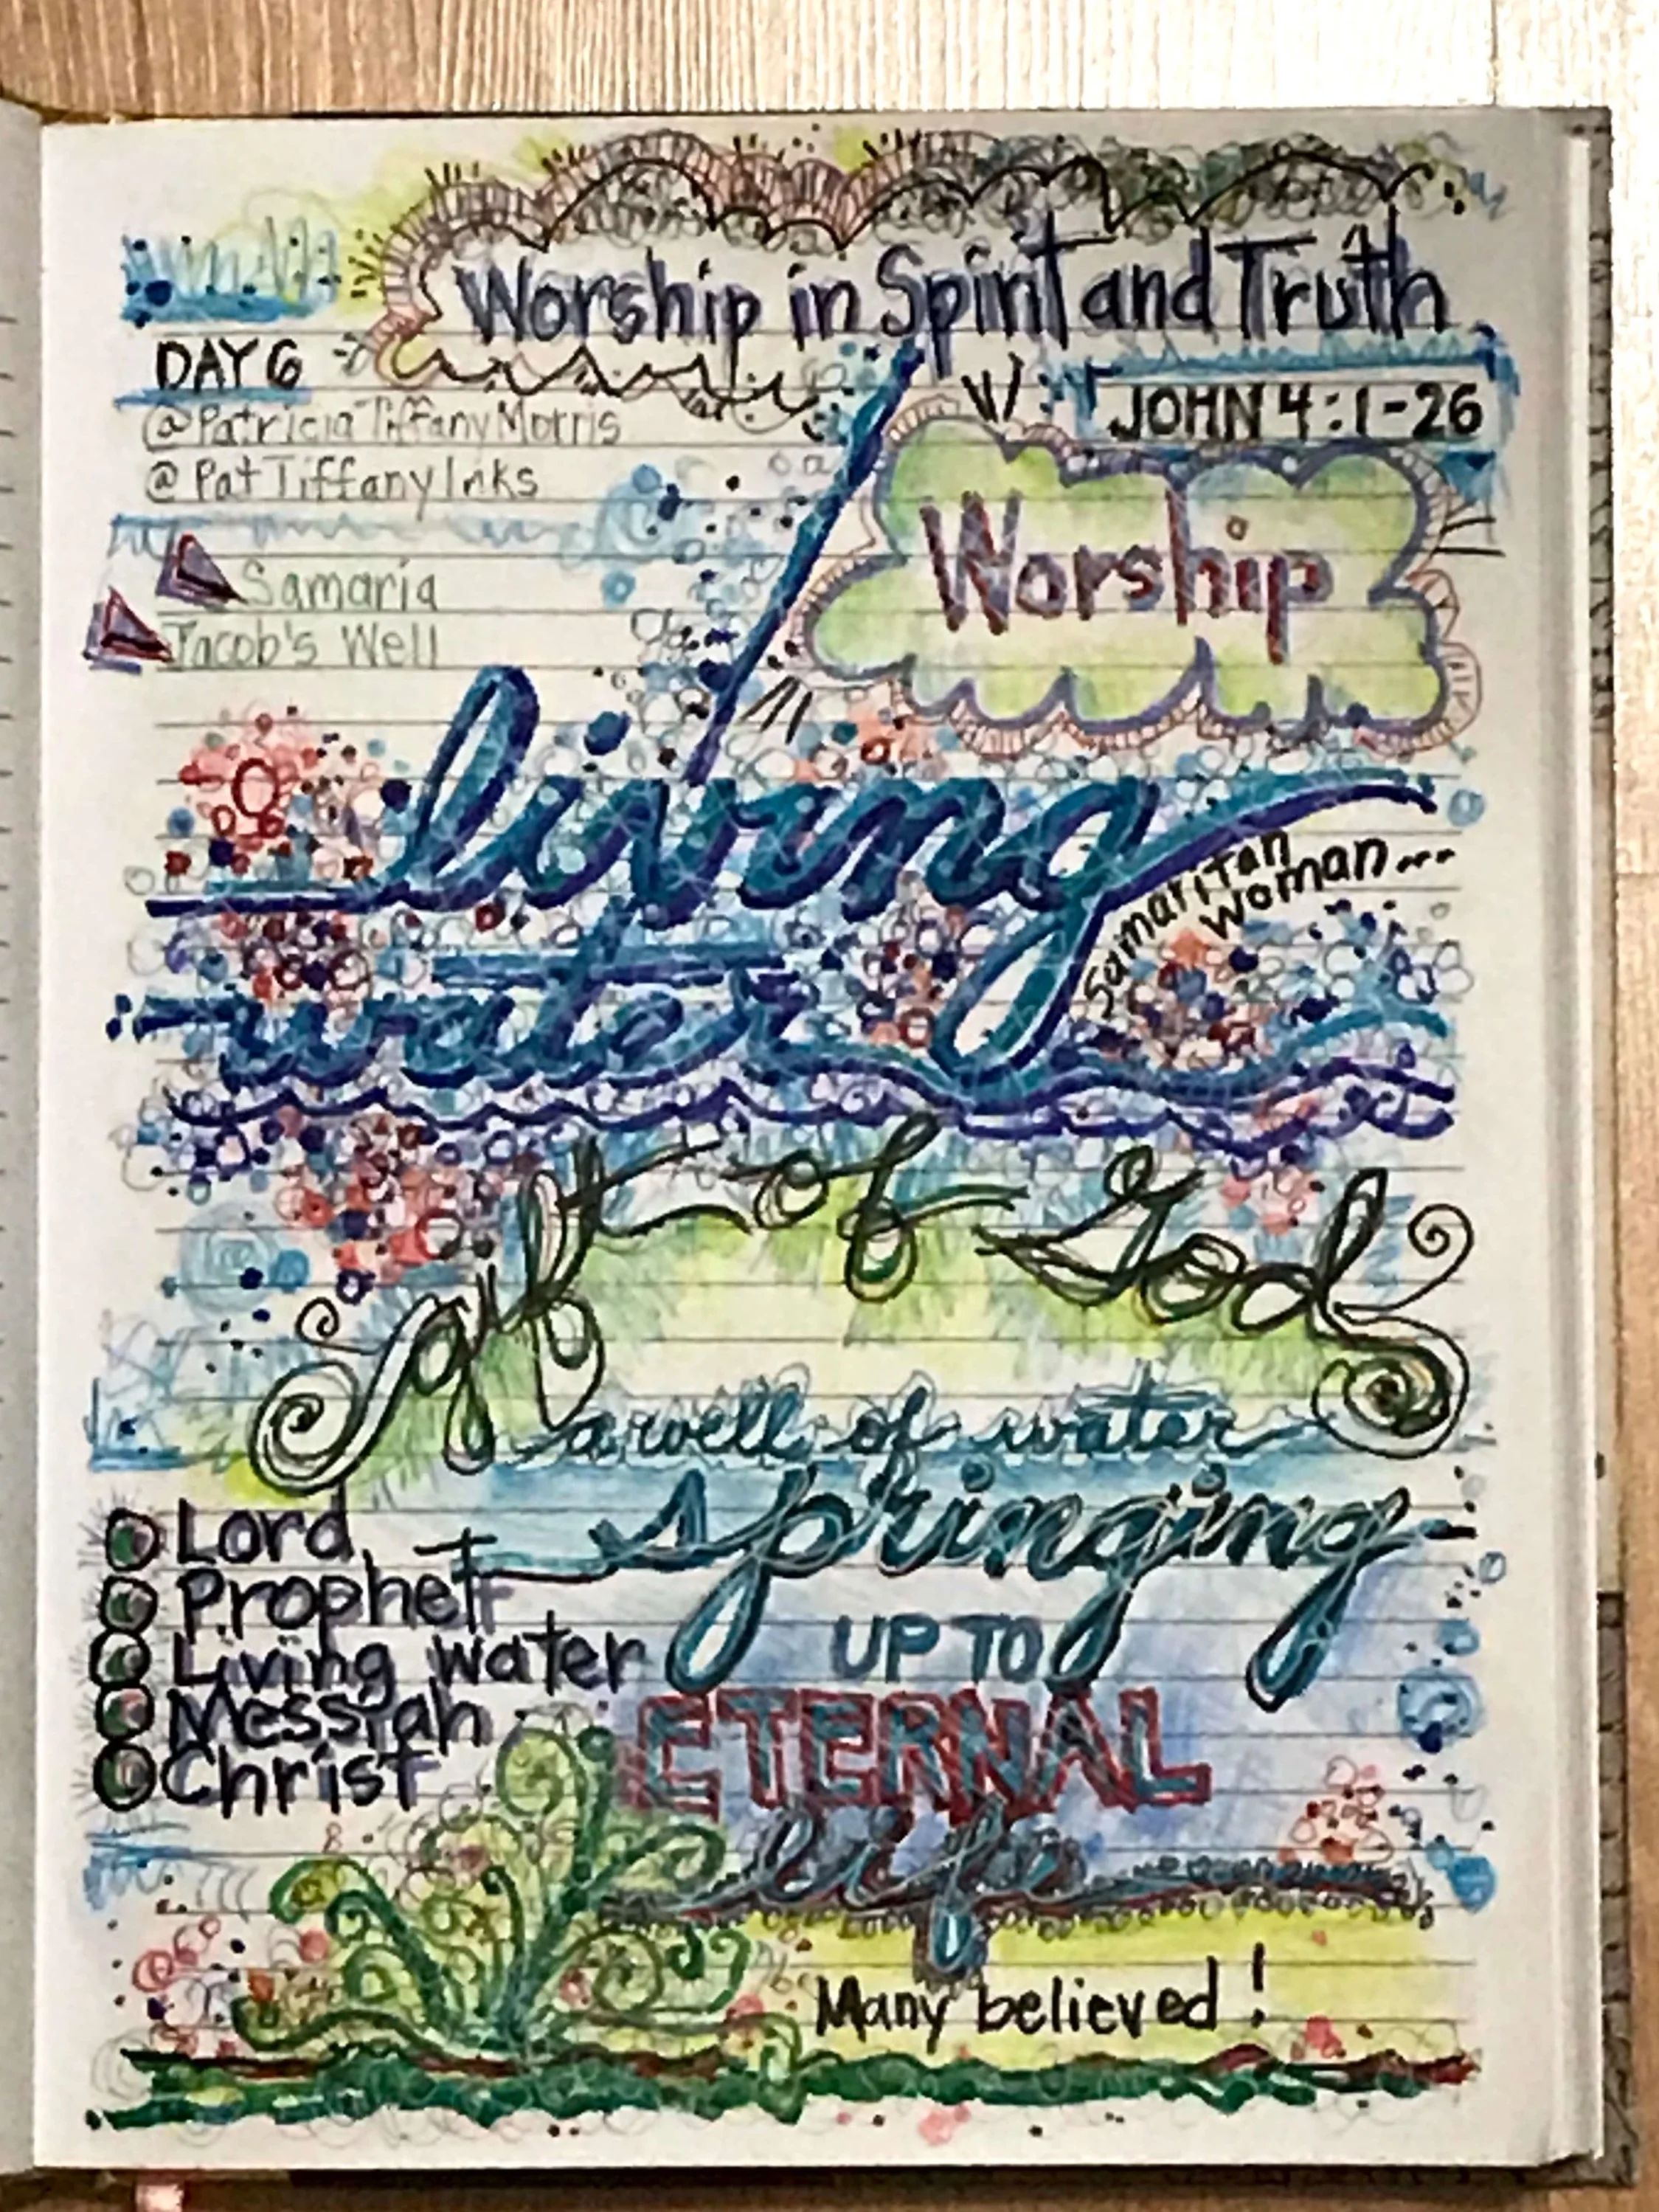 Worship in Spirit and Truth
DAY 6
JOHN 4:1-26
@PatriciaTiffanyMorris
@PatTiffanyInks
Worship
Samaria
Jacob's Well
living
Samaritan
Woman...
water
gift of God
a well of water
springing
UP TO
ETERNAL
life
Lord
Prophet
Living water
Messiah
Christ
Many believed!